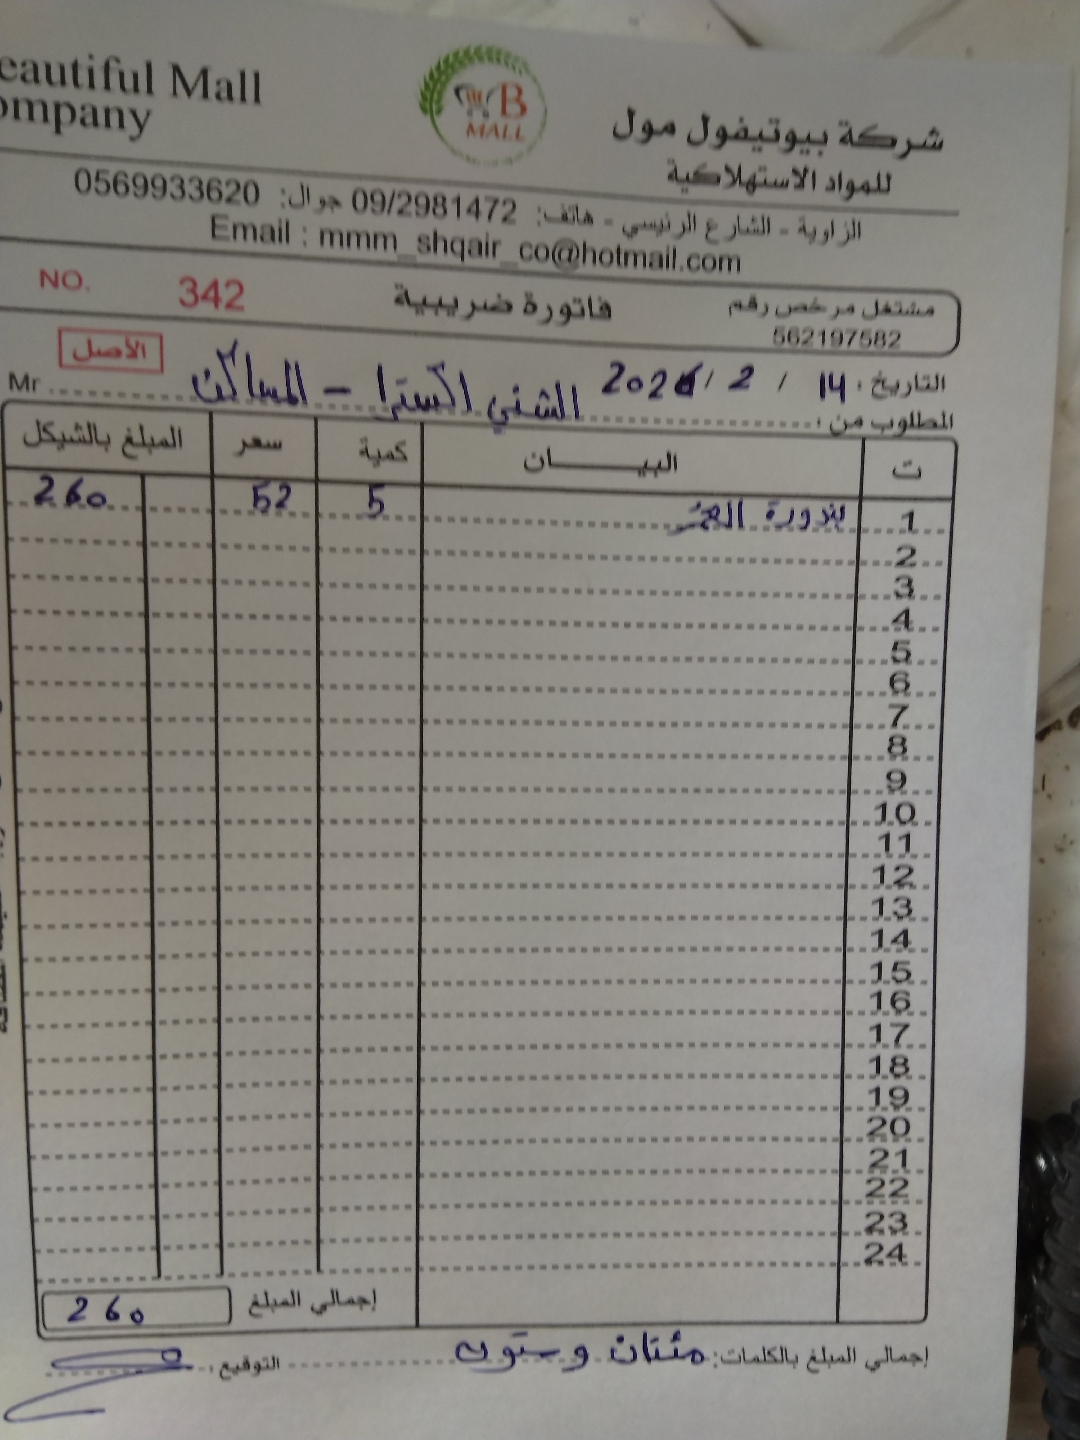 eautiful Mall
ompany
B
MALL
شركة بيوتيفول مول
للمواد الاستهلاكية
الزاوية - الشارع الرئيسي - هاتف: 09/2981472 جوال: 0569933620
Email : mmm_shqair_co@hotmail.com
مشتغل مرخص رقم
562197582
فاتورة ضريبية
NO. 342
الأصل
التاريخ: 14 / 2 / 2026
المطلوب من: الشني اكسترا - المساكن Mr
ت البيـــــان كمية سعر المبلغ بالشيكل
1 بندورة 5 52 260
2
3
4
5
6
7
8
9
10
11
12
13
14
15
16
17
18
19
20
21
22
23
24
إجمالي المبلغ 260
إجمالي المبلغ بالكلمات: مئتان وستون التوقيع: